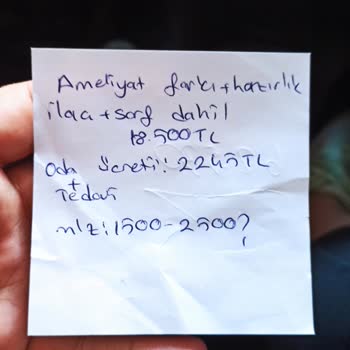 Ameliyat farkı+hazırlık
ilaç+sarf dahil
18.500TL
Oda Ücreti: 2245TL
+
Tedavi
1500-2500?